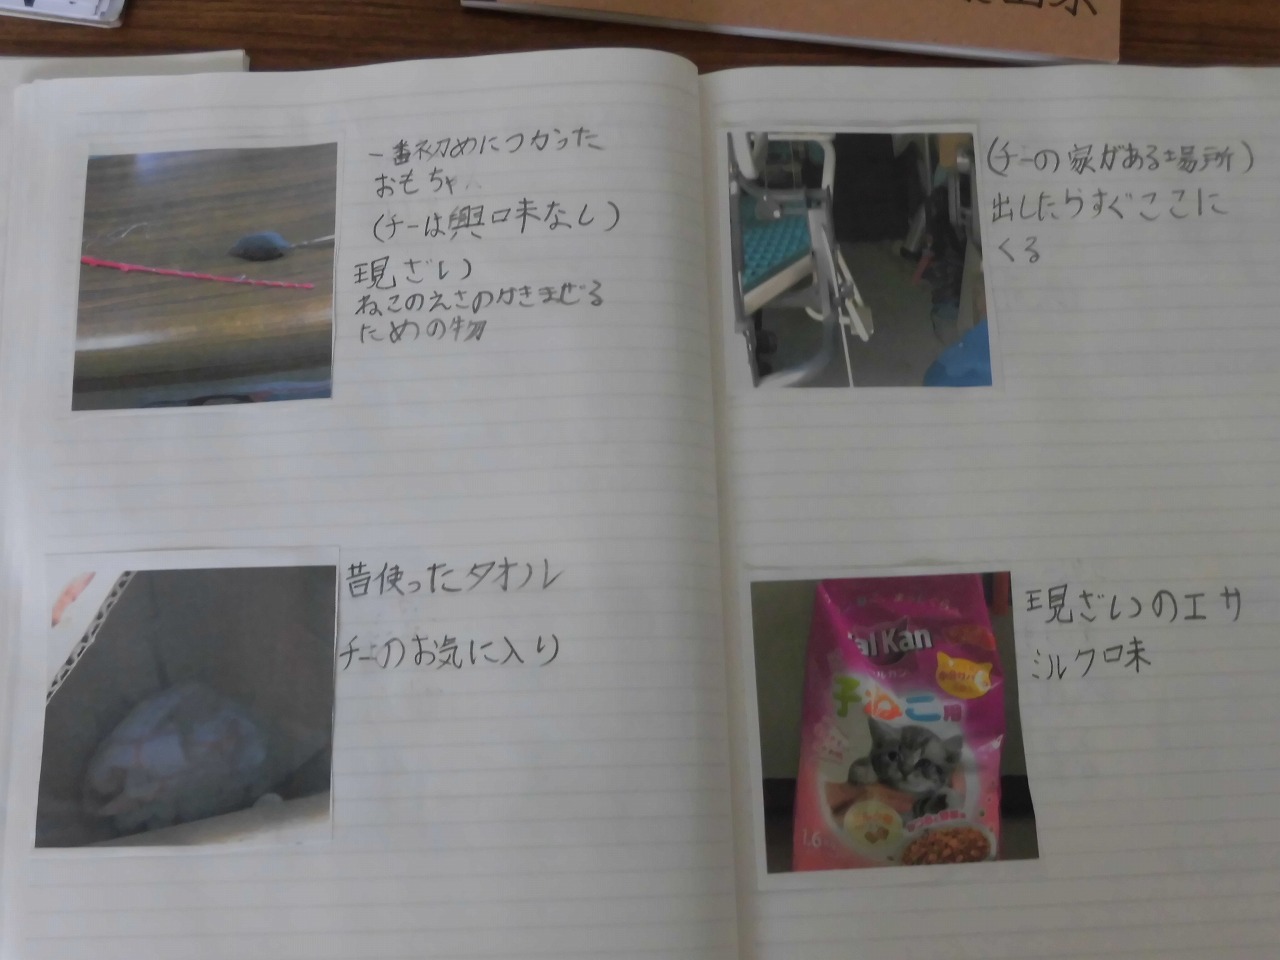 一番初めにつかった
おもちゃ
(チーは興味なし)
現ざい
ねこのえさのかきまぜる
ための物
昔使ったタオル
チーのお気に入り
(チーの家がある場所)
出したらすぐここに
くる
現ざいのエサ
ミルク味
Kal Kan
子ねこ用
1.6